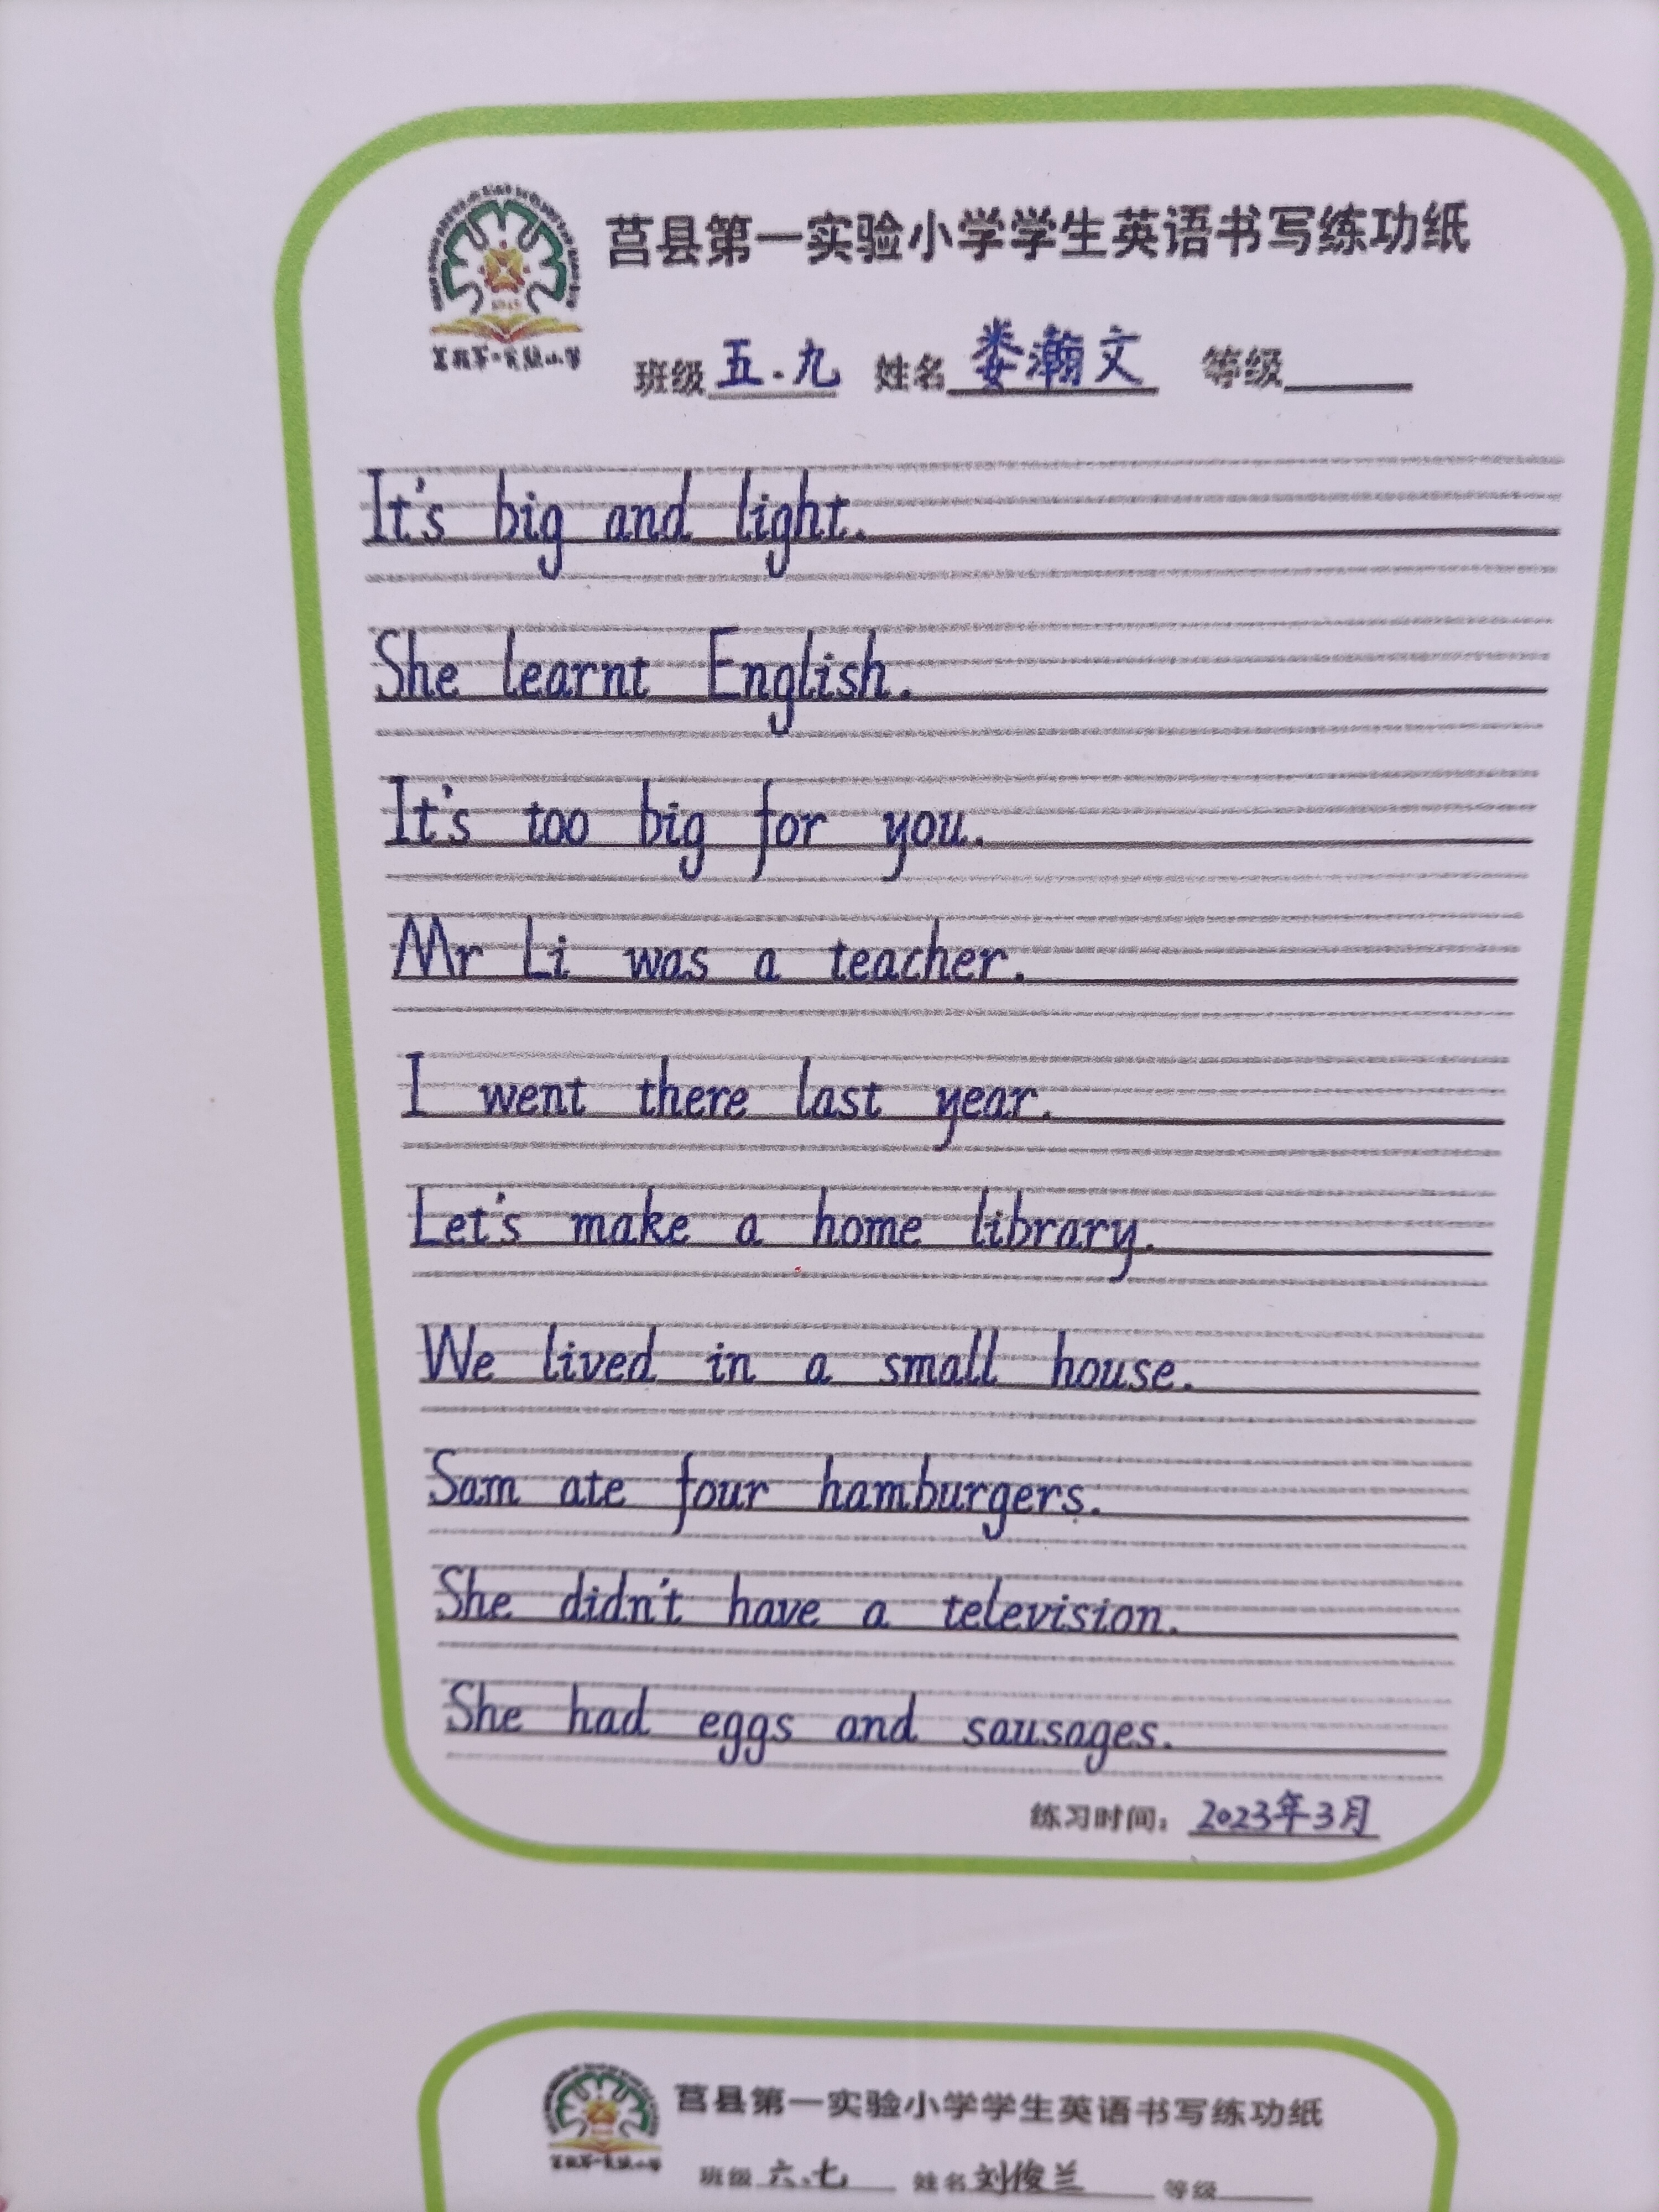 莒县第一实验小学学生英语书写练功纸
班级 五.九 姓名 娄瀚文 等级
It's big and light.
She learnt English.
It's too big for you.
Mr Li was a teacher.
I went there last year.
Let's make a home library.
We lived in a small house.
Sam ate four hamburgers.
She didn't have a television.
She had eggs and sausages.
练习时间: 2023年3月
莒县第一实验小学学生英语书写练功纸
班级 六.七 姓名 刘俊兰 等级